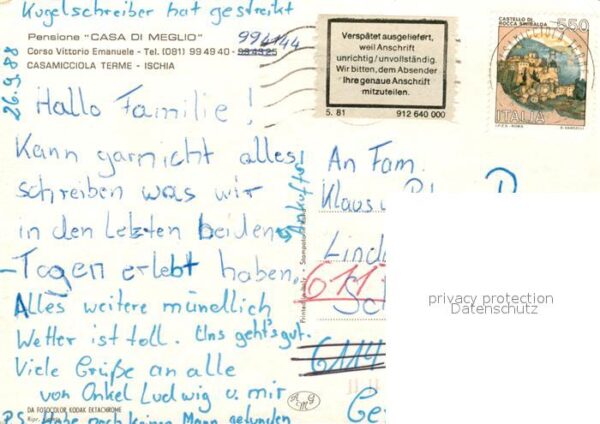 Kugelschreiber hat gestreikt
Pensione "CASA DI MEGLIO"
994144
Corso Vittorio Emanuele - Tel. (081) 99 49 40 - 98 43 25
CASAMICCIOLA TERME - ISCHIA
26.9.88
Hallo Familie!
Kann garnicht alles
schreiben was wir
in den letzten beiden
Tagen erlebt haben.
Alles weitere mündlich
Wetter ist toll. Uns geht's gut.
Viele Grüße an alle
von Onkel Ludwig u. mir
DA FOSOCOLOR KODAK EKTACHROME
P.S. Habe noch keinen Mann gefunden
Verspätet ausgeliefert,
weil Anschrift
unrichtig/unvollständig.
Wir bitten, dem Absender
Ihre genaue Anschrift
mitzuteilen.
5. 81 912 640 000
CASTELLO DI
ROCCA SINIBALDA
550
ITALIA
I.P.Z.S. - ROMA
An Fam.
Klaus
Linde
611
6114
privacy protection
Datenschutz